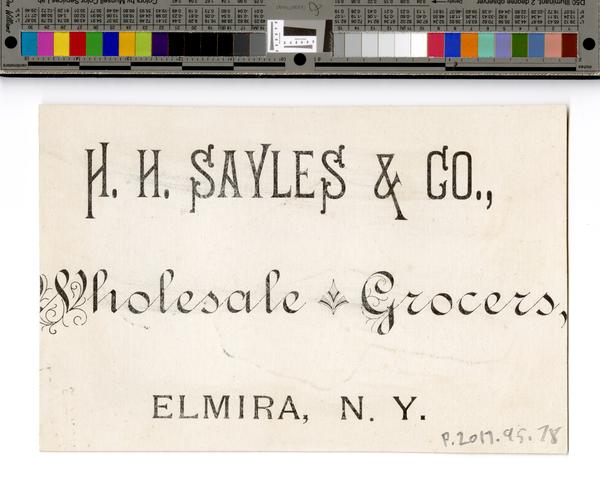 H. H. SAYLES & CO.,
Wholesale Grocers,
ELMIRA, N. Y.
P.2017.95.78